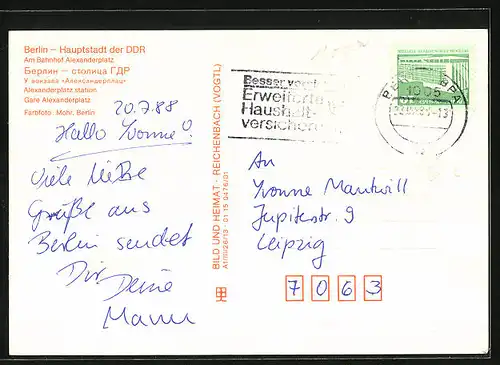 Berlin – Hauptstadt der DDR
Am Bahnhof Alexanderplatz
Берлин – столица ГДР
У вокзала «Александерплац»
Alexanderplatz station
Gare Alexanderplatz
Farbfoto: Mohr, Berlin
20.7.88
Hallo Yvonne!
Viele liebe
Grüße aus
Berlin sendet
Dir Deine
BILD UND HEIMAT · REICHENBACH (VOGTL)
A1/III/26/13 · 01 15 0476/01
Besser
Erweiterte
Haushalt-
versicher
1085
An
Yvonne
Jupiterstr. 9
Leipzig
7063